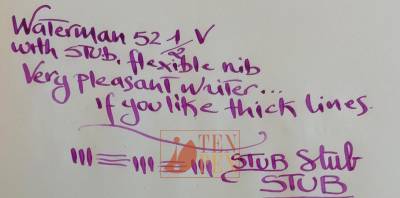 Waterman 52 1/2 V
with STUB, flexible nib
Very pleasant writer...
if you like thick lines.
STUB Stub
STUB
TEN
PEN